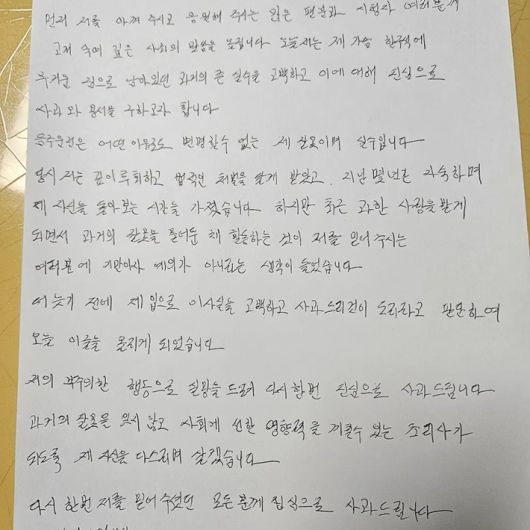 먼저 저를 아껴 주시고 응원해 주시는 많은 팬분과 시청자 여러분께
고개 숙여 깊은 사죄의 말씀을 올립니다 오늘 저는 제 가슴 한구석에
무거운 짐으로 남아있던 과거의 큰 실수를 고백하고 이에 대해 진심으로
사과와 용서를 구하고자 합니다
음주운전은 어떤 이유로도 변명할수 없는 제 잘못이며 실수입니다
당시 저는 깊이 후회하고 법적인 처벌을 달게 받았고, 지난 몇년간 자숙하며
제 자신을 돌아보는 시간을 가졌습니다 하지만 최근 과한 사랑을 받게
되면서 과거의 잘못을 묻어둔 채 활동하는 것이 저를 믿어 주시는
여러분에 기만이자 예의가 아니라는 생각이 들었습니다
더 늦기 전에 제 입으로 이사실을 고백하고 사과드리는것이 도리라고 판단하여
오늘 이글을 올리게 되었습니다
저의 부주의한 행동으로 실망을 드려 다시한번 진심으로 사과드립니다
과거의 잘못을 잊지 않고 사회에 선한 영향력을 끼칠수 있는 조리사가
되도록 제 자신을 다스리며 살겠습니다
다시 한번 저를 믿어 주셨던 모든 분께 진심으로 사과드립니다